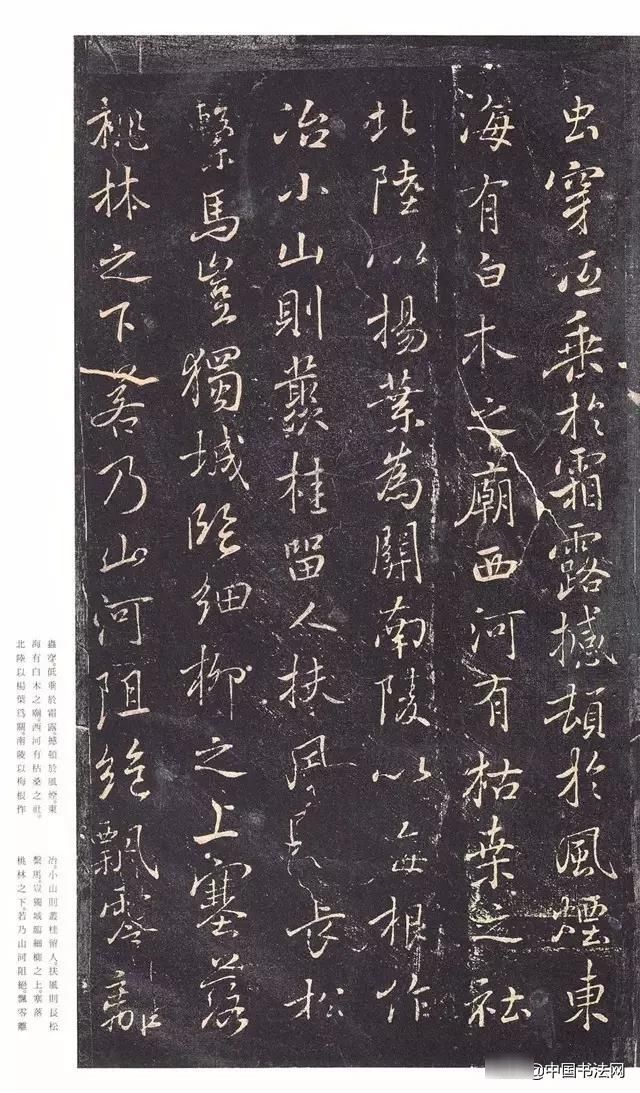 虫穿低垂於霜露撼頓於風煙東
海有白木之廟西河有枯桒之社
北陸以揚葉為關南陵以每根作
冶小山則叢桂留人扶風則長松
繫馬豈獨城臨細柳之上塞落
桃林之下若乃山河阻絶飄零離
蟲穿。低垂於霜露。撼頓於風煙。東
海有白木之廟。西河有枯桑之社。
北陸以楊葉爲關。南陵以梅根作
冶。小山則叢桂留人。扶風則長松
繫馬。豈獨城臨細柳之上。塞落
桃林之下。若乃山河阻絕。飄零離
@中国书法网